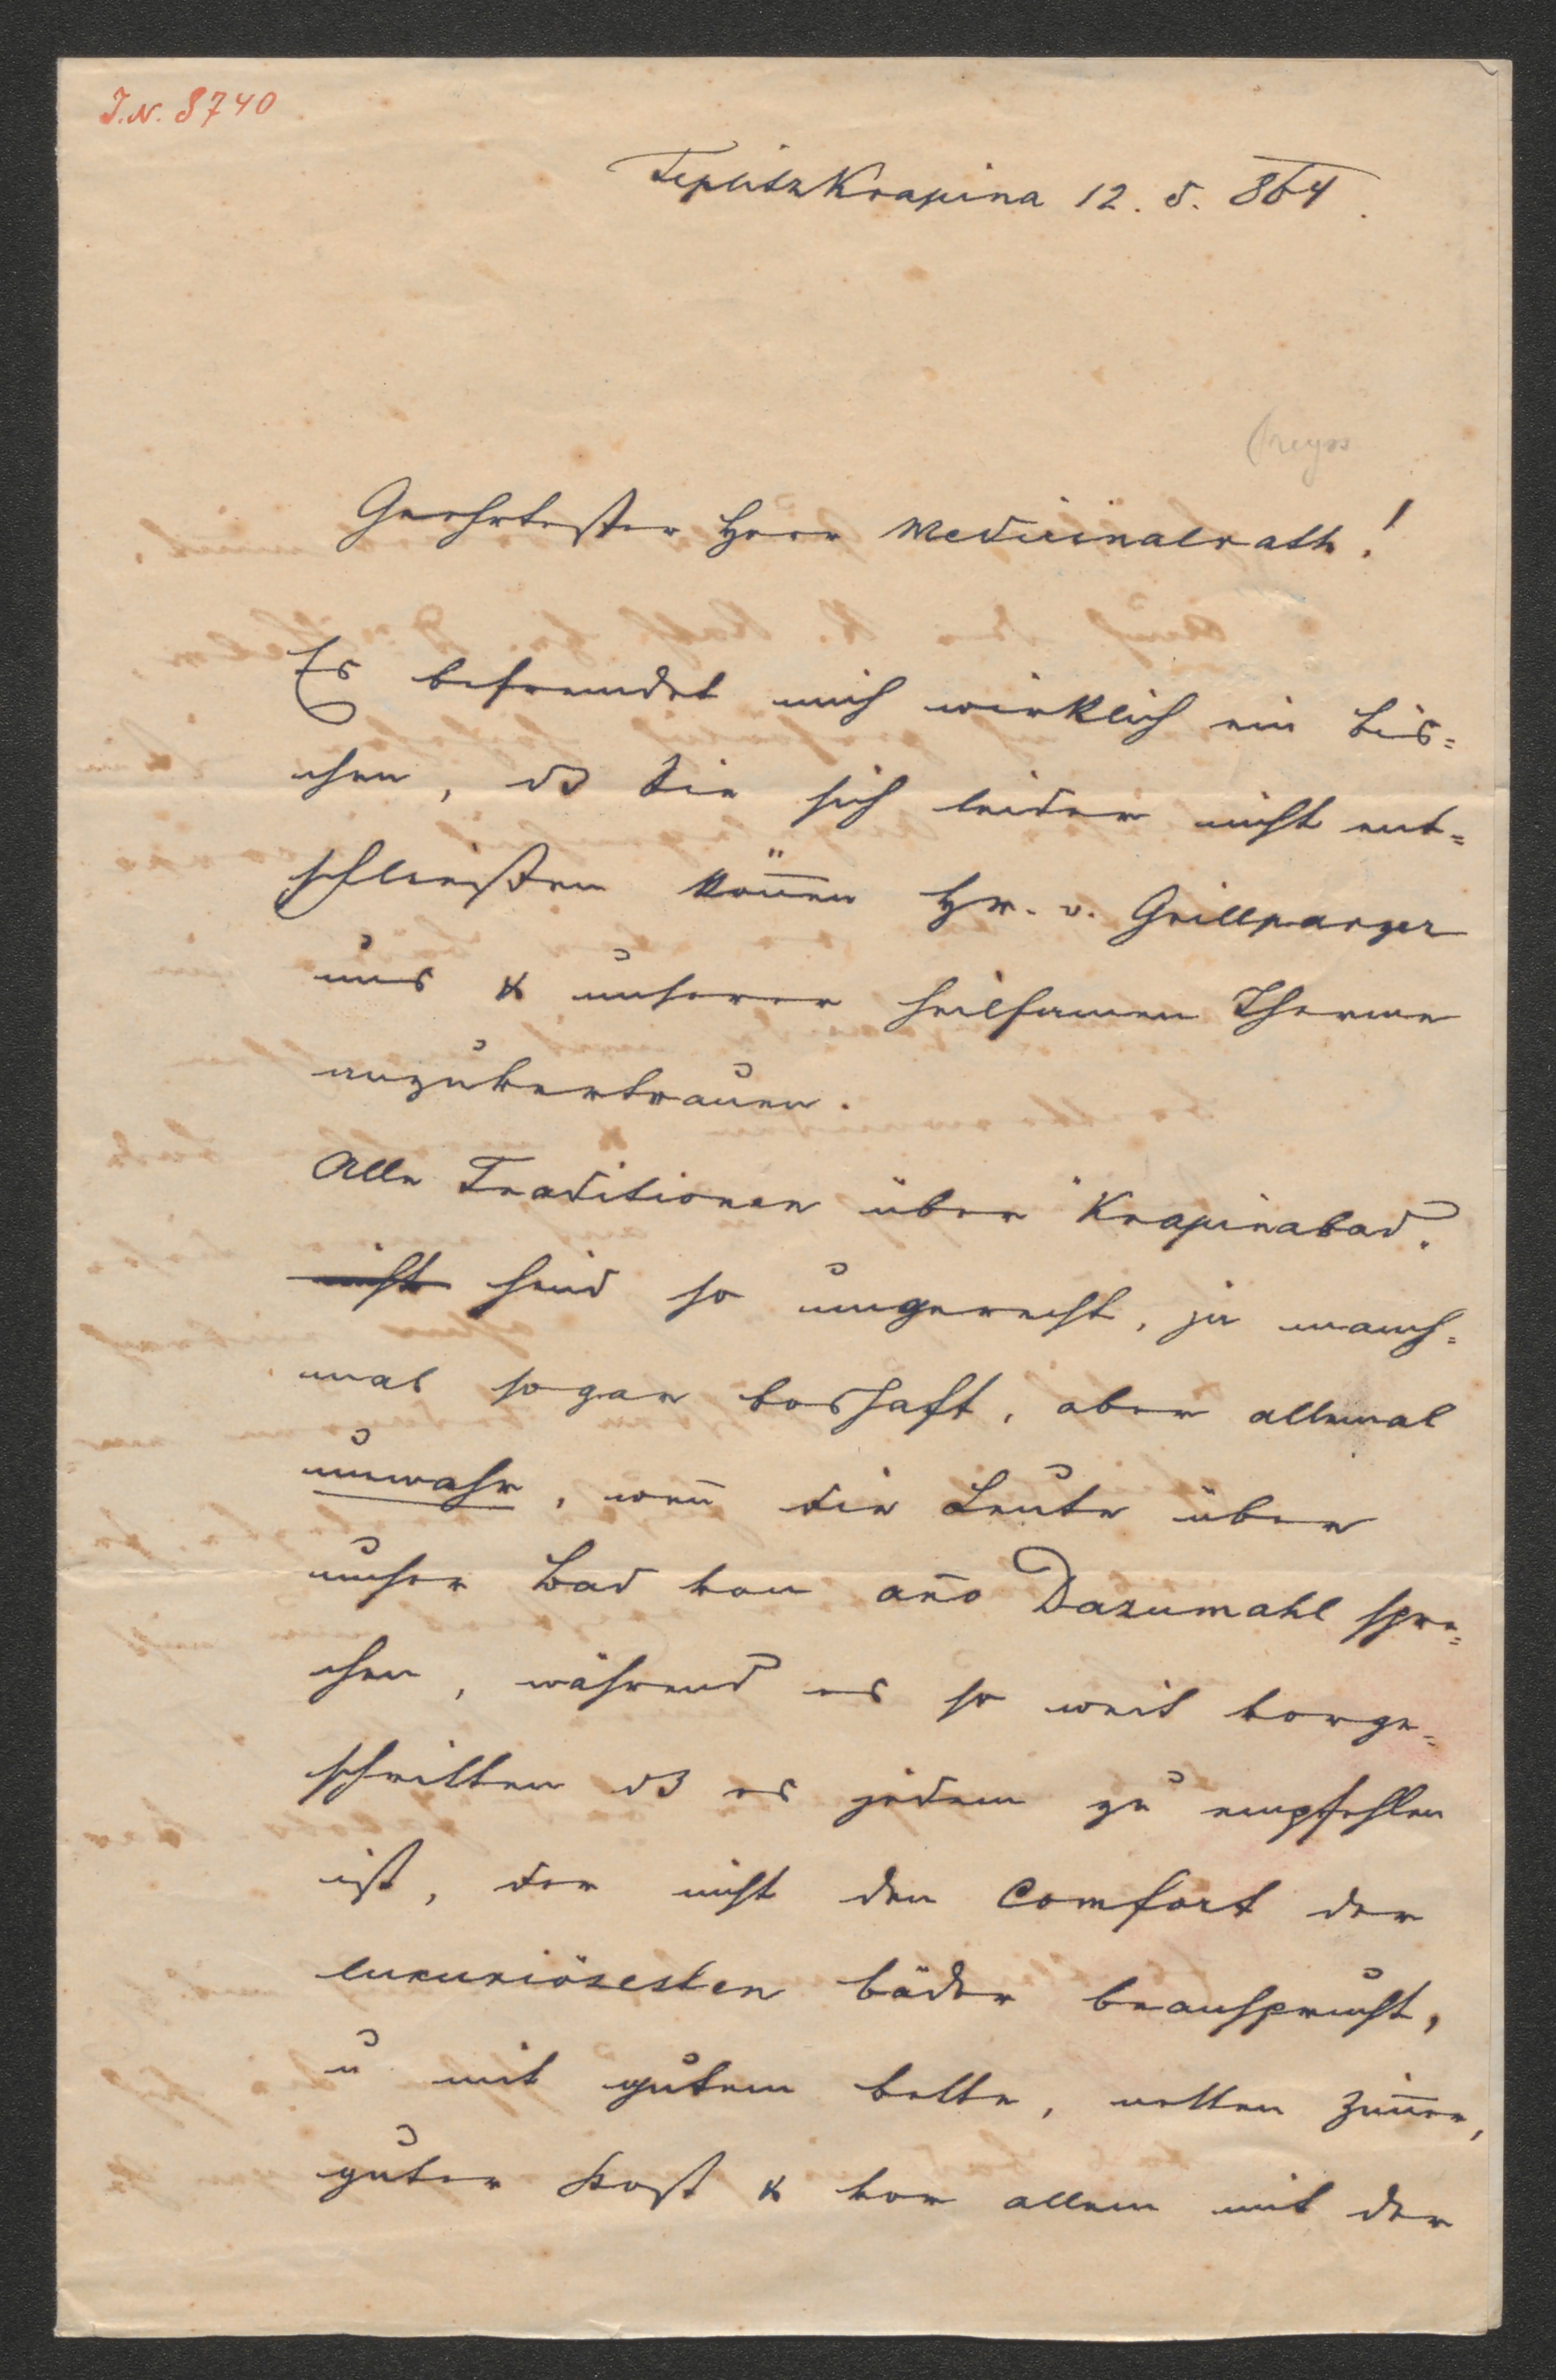 J.N. 8740
Teplitz Krapina 12. 5. 864.
Geehrtester Herr Medicinalrath!
Es befremdet mich wirklich ein bis=
chen, dß Sie sich leider nicht ent=
schließen koͤn̄en Hr. v. Grillparzer
uns & unserer heilsamen Therme
anzuvertrauen.
Alle Traditionen über Krapinabad.
nicht sind so ungerecht, ja manch=
mal sogar boshaft, aber allemal
unwahr, wen̄ die Leute über
unser Bad von an̄o Dazumahl spre=
chen, während es so weit vorge=
schritten dß es jedem zu empfehlen
ist, der nicht den Comfort der
luxuriösesten bäder beansprucht,
u mit gutem bette, netten Zim̄er,
guter Kost & vor allem mit der